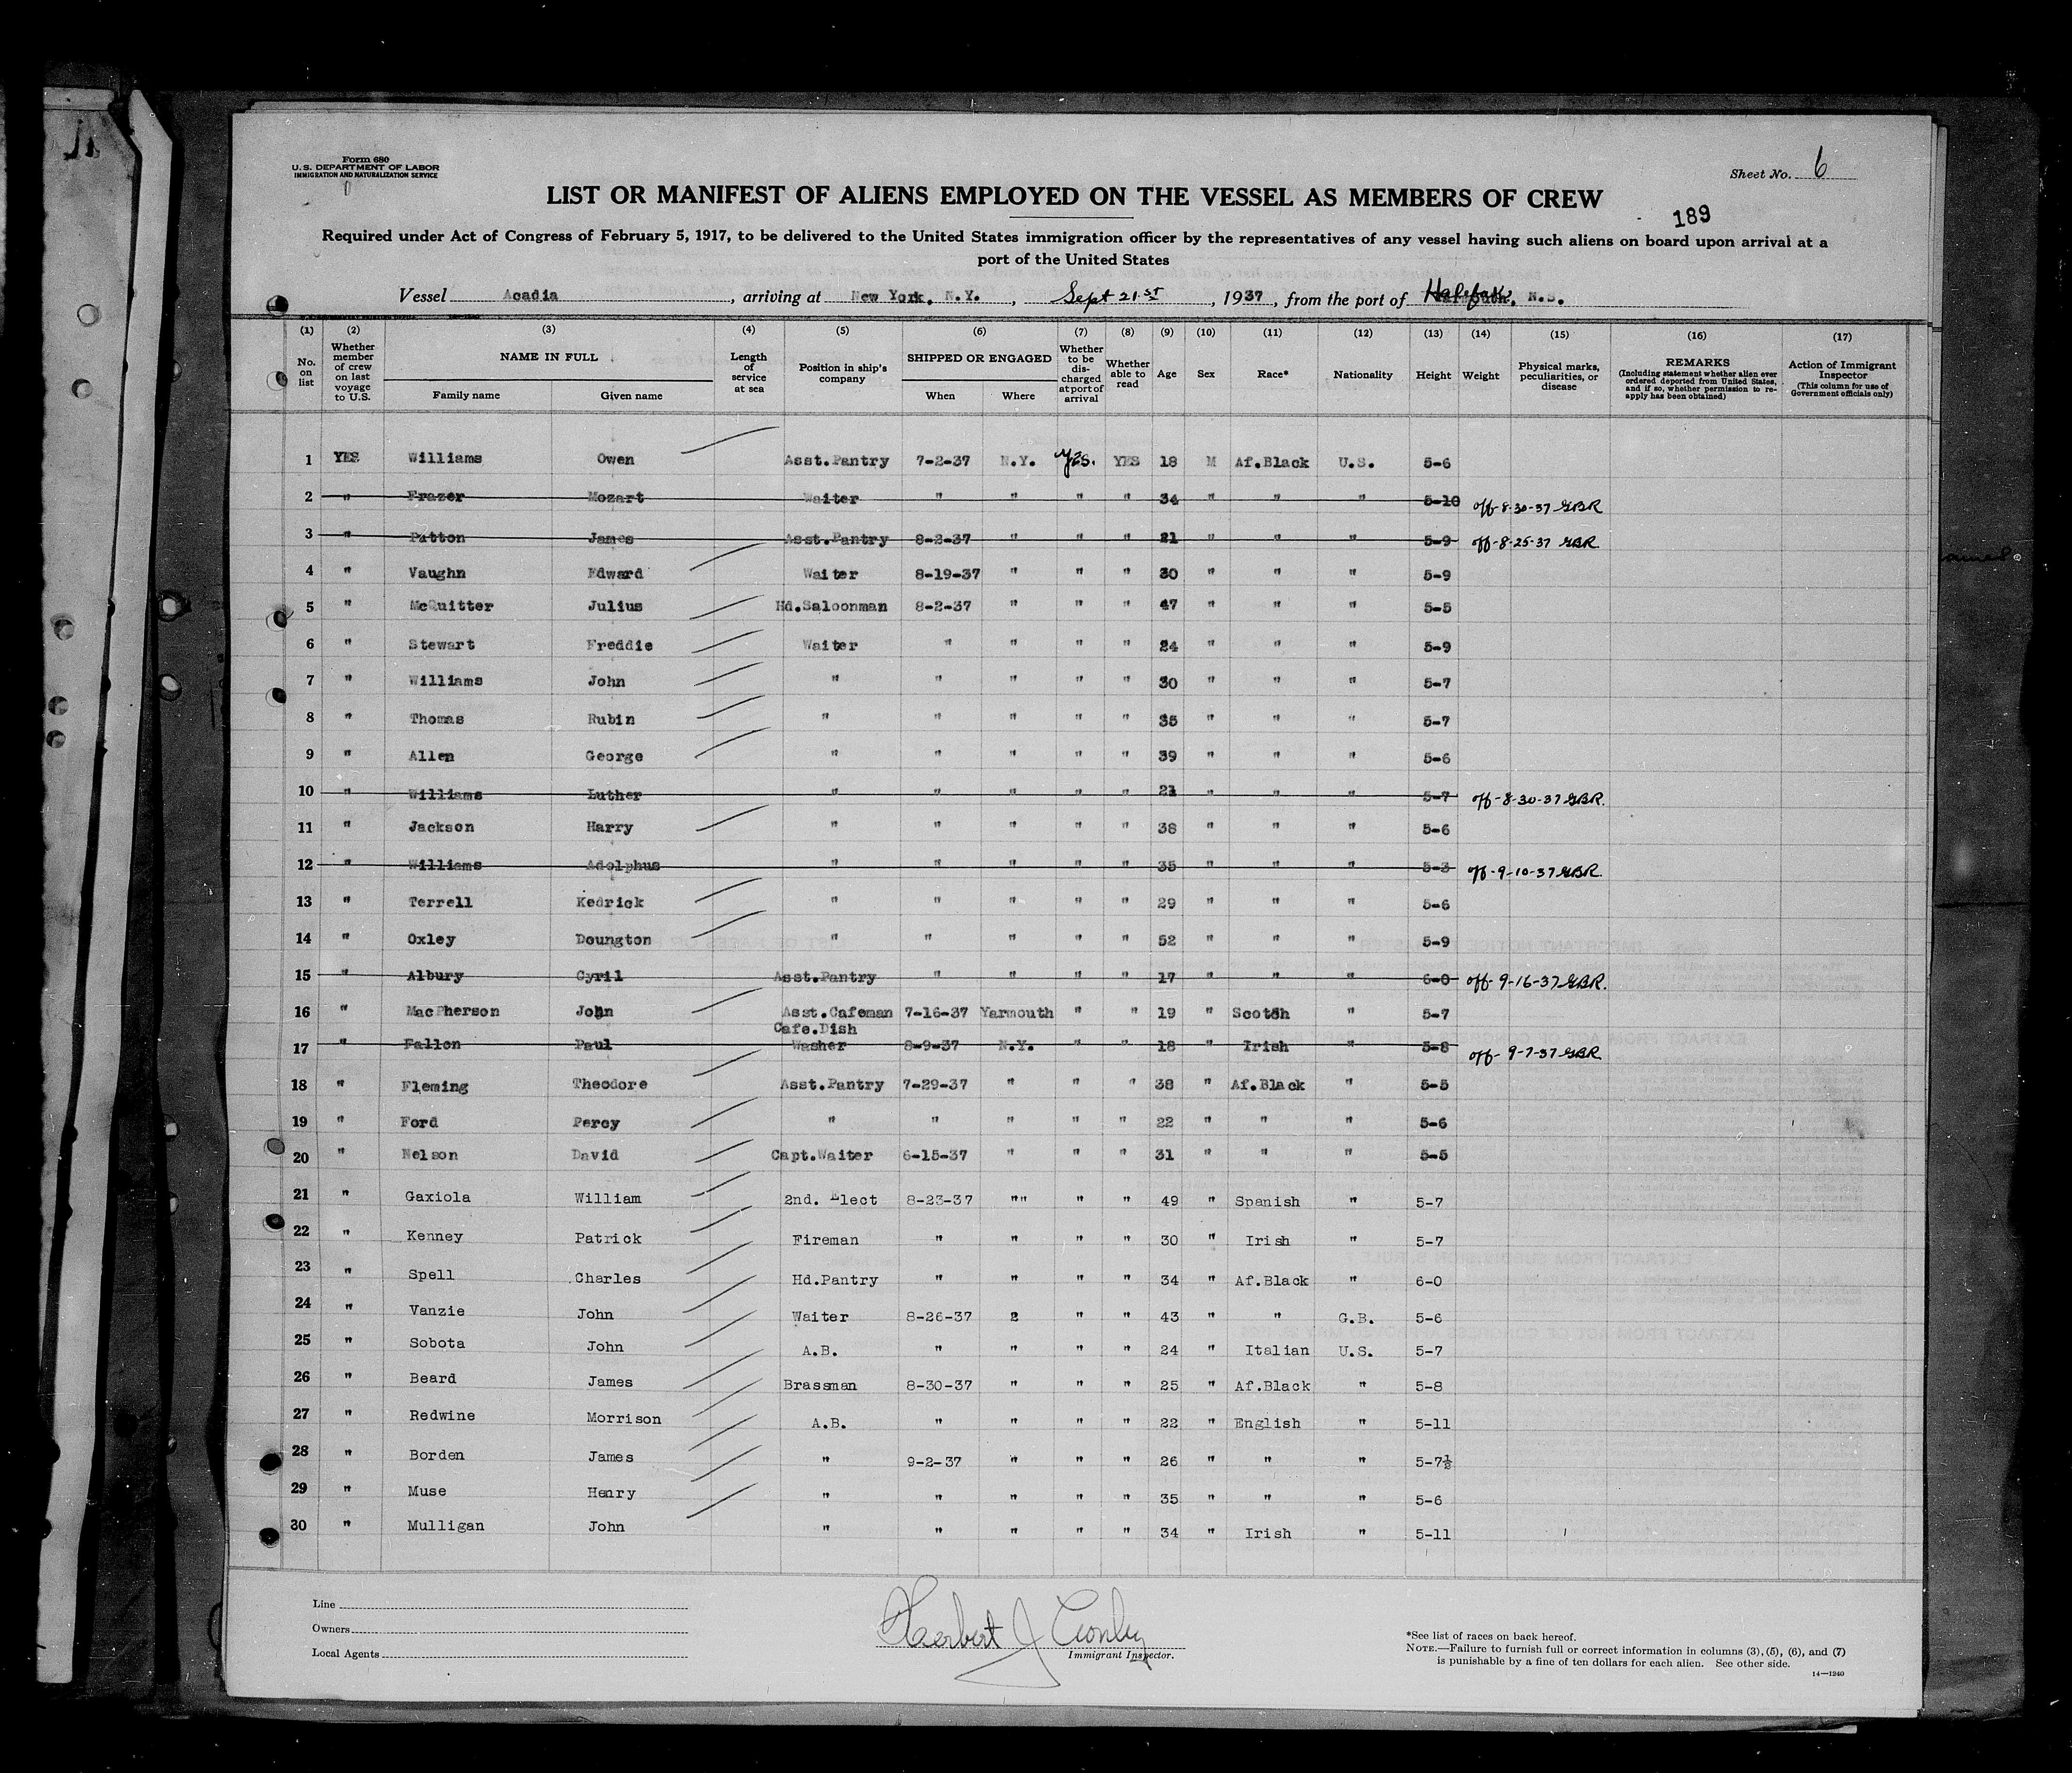 Form 680
U. S. DEPARTMENT OF LABOR
IMMIGRATION AND NATURALIZATION SERVICE
Sheet No. 6
LIST OR MANIFEST OF ALIENS EMPLOYED ON THE VESSEL AS MEMBERS OF CREW
189
Required under Act of Congress of February 5, 1917, to be delivered to the United States immigration officer by the representatives of any vessel having such aliens on board upon arrival at a
port of the United States
Vessel Acadia, arriving at New York, N.Y., Sept 21st, 1937, from the port of Halifax, N.S.
(1) (2) (3) (4) (5) (6) (7) (8) (9) (10) (11) (12) (13) (14) (15) (16) (17)
No. on list Whether member of crew on last voyage to U.S. NAME IN FULL Family name Given name Length of service at sea Position in ship's company SHIPPED OR ENGAGED When Where Whether to be discharged at port of arrival Whether able to read Age Sex Race* Nationality Height Weight Physical marks, peculiarities, or disease REMARKS (Including statement whether alien ever ordered deported from United States, and if so, whether permission to reapply has been obtained) Action of Immigrant Inspector (This column for use of Government officials only)
1 YES Williams Owen Asst.Pantry 7-2-37 N.Y. Yes. YES 18 M Af.Black U.S. 5-6
2 " Frazer Mozart Waiter " " " " 34 " " " 5-10 off-8-30-37 GBR
3 " Patton James Asst.Pantry 8-2-37 " " " 21 " " " 5-9 off-8-25-37 GBR
4 " Vaughn Edward Waiter 8-19-37 " " " 30 " " " 5-9
5 " McQuitter Julius Hd.Saloonman 8-2-37 " " " 47 " " " 5-5
6 " Stewart Freddie Waiter " " " " 24 " " " 5-9
7 " Williams John " " " " " 30 " " " 5-7
8 " Thomas Rubin " " " " " 35 " " " 5-7
9 " Allen George " " " " " 39 " " " 5-6
10 " Williams Luther " " " " " 21 " " " 5-7 off-8-30-37 GBR.
11 " Jackson Harry " " " " " 38 " " " 5-6
12 " Williams Adolphus " " " " " 35 " " " 5-3 off-9-10-37 GBR.
13 " Terrell Kedrick " " " " " 29 " " " 5-6
14 " Oxley Doungton " " " " " 52 " " " 5-9
15 " Albury Cyril Asst.Pantry " " " " 17 " " " 6-0 off-9-16-37 GBR.
16 " MacPherson John Asst.Cafeman 7-16-37 Yarmouth " " 19 " Scotch " 5-7
Cafe.Dish
17 " Fallon Paul Washer 8-9-37 N.Y. " " 18 " Irish " 5-8 off- 9-7-37 GBR
18 " Fleming Theodore Asst.Pantry 7-29-37 " " " 38 " Af.Black " 5-5
19 " Ford Percy " " " " " 22 " " " 5-6
20 " Nelson David Capt.Waiter 6-15-37 " " " 31 " " " 5-5
21 " Gaxiola William 2nd. Elect 8-23-37 "" " " 49 " Spanish " 5-7
22 " Kenney Patrick Fireman " " " " 30 " Irish " 5-7
23 " Spell Charles Hd.Pantry " " " " 34 " Af.Black " 6-0
24 " Vanzie John Waiter 8-26-37 2 " " 43 " " G.B. 5-6
25 " Sobota John A.B. " " " " 24 " Italian U.S. 5-7
26 " Beard James Brassman 8-30-37 " " " 25 " Af.Black " 5-8
27 " Redwine Morrison A.B. " " " " 22 " English " 5-11
28 " Borden James " 9-2-37 " " " 26 " " " 5-7½
29 " Muse Henry " " " " " 35 " " " 5-6
30 " Mulligan John " " " " " 34 " Irish " 5-11
Line
Owners
Local Agents
Herbert J Conley
Immigrant Inspector.
*See list of races on back hereof.
NOTE.—Failure to furnish full or correct information in columns (3), (5), (6), and (7)
is punishable by a fine of ten dollars for each alien. See other side.
14—1240